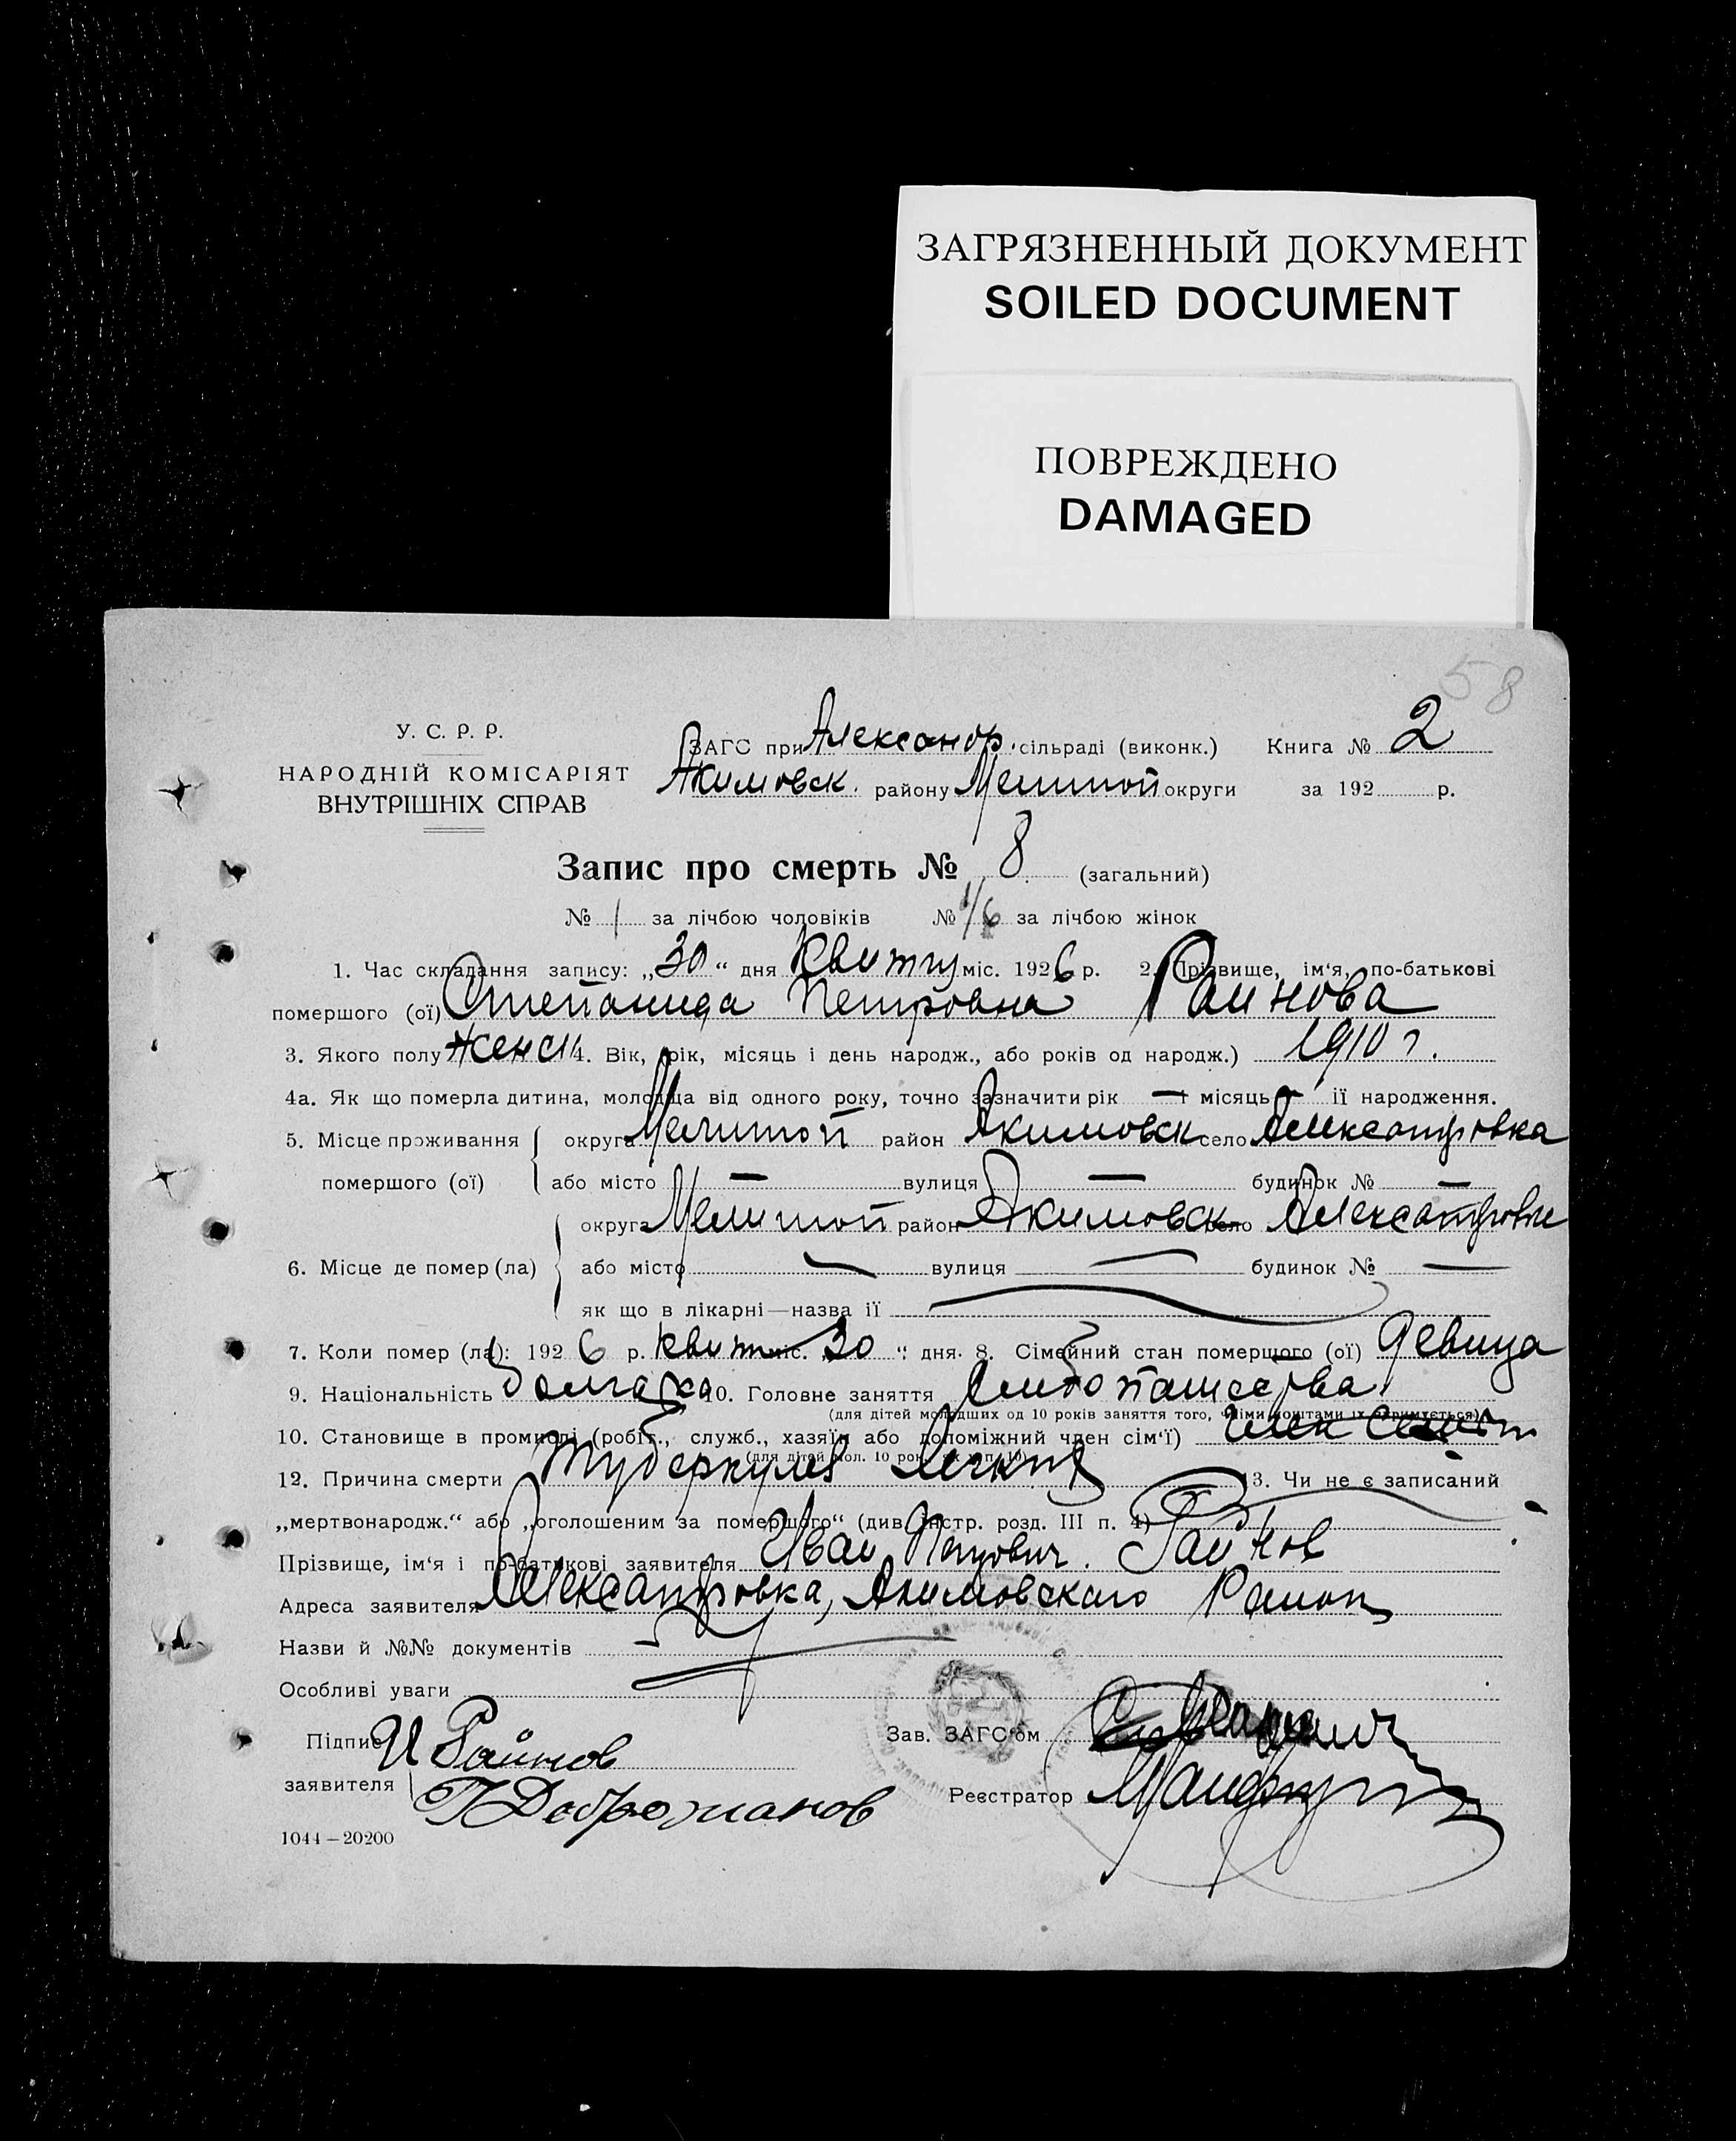 ЗАГРЯЗНЕННЫЙ ДОКУМЕНТ
SOILED DOCUMENT
ПОВРЕЖДЕНО
DAMAGED
58
У. С. Р. Р.
НАРОДНІЙ КОМІСАРІЯТ
ВНУТРІШНІХ СПРАВ
ЗАГС при Александр. сільраді (виконк.) Книга № 2
Акимовск. району Мелитоп округи за 192 р.
Запис про смерть № 8 (загальний)
№ 1 за лічбою чоловіків № 1/6 за лічбою жінок
1. Час складання запису: „30“ дня Квитну міс. 1926 р. 2. Прізвище, ім‘я, по-батькові
помершого (ої) Степанида Петровна Райнова
3. Якого полу женск 4. Вік, рік, місяць і день народж., або років од народж.) 1910 г.
4а. Як що померла дитина, молодша від одного року, точно зазначити рік — і місяць — її народження.
5. Місце проживання округа Мелитоп район Акимовск село Александровка
помершого (ої) або місто — вулиця — будинок № —
округа Мелитоп район Акимовск село Александровке
6. Місце де помер (ла) або місто — вулиця — будинок № —
як що в лікарні—назва її —
7. Коли помер (ла): 1926 р. квитн міс. „30“ дня. 8. Сімейний стан помершого (ої) девица
9. Національність болгарка 10. Головне заняття хлебопашества
(для дітей молодших од 10 років заняття того, чиїми коштами їх одримується)
10. Становище в промислі (робіт., служб., хазяїн або допоміжний член сім‘ї) член семьи
(для дітей мол. 10 рок. як у п. 10)
12. Причина смерти туберкулез легких 13. Чи не є записаний
„мертвонародж.“ або „оголошеним за помершого“ (див. інстр. розд. III п. 4)
Прізвище, ім‘я і по-батькові заявителя Иван Петрович Райнов
Адреса заявителя Александровка, Акимовскаго Район
Назви й №№ документів
Особливі уваги
Підпис И Райнов Зав. ЗАГС‘ом
заявителя П Доброжанов Реєстратор
1044—20200